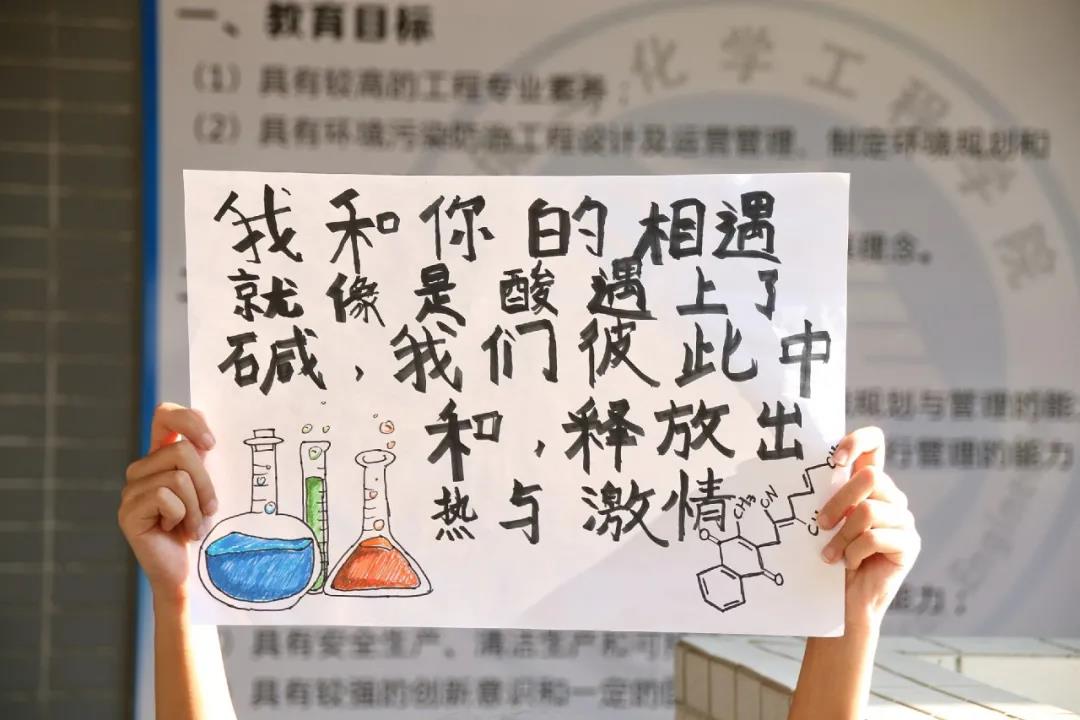 一、教育目标
（1）具有较高的工程专业素养；
（2）具有环境污染防治工程设计及运营管理、制定环境规划和
化学工程学院
理念。
我和你的相遇
就像是酸遇上了
碱，我们彼此中
和，释放出
热与激情
CH₃
规划与管理的能
行管理的能力
能力；
具有安全生产、清洁生产和可
具有较强的创新意识和一定的